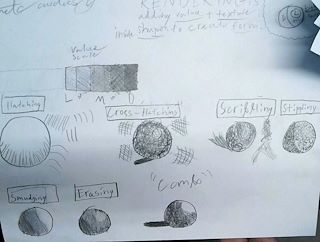 RENDERING is
adding value + texture
inside shapes to create form.
Value
Scale
L M D
Hatching
Cross-Hatching
Scribbling
Stippling
Smudging
Erasing
"Combo"